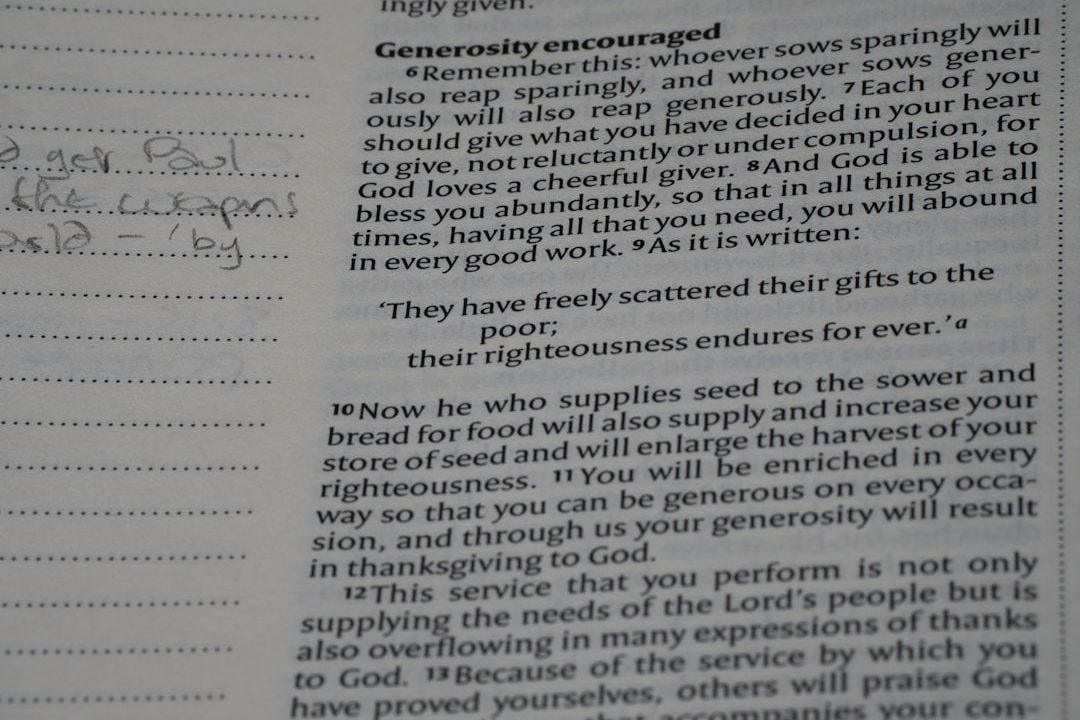 ingly given.
Generosity encouraged
6 Remember this: whoever sows sparingly will
also reap sparingly, and whoever sows gener-
ously will also reap generously. 7 Each of you
should give what you have decided in your heart
to give, not reluctantly or under compulsion, for
God loves a cheerful giver. 8 And God is able to
bless you abundantly, so that in all things at all
times, having all that you need, you will abound
in every good work. 9 As it is written:
‘They have freely scattered their gifts to the
poor;
their righteousness endures for ever.’ a
10 Now he who supplies seed to the sower and
bread for food will also supply and increase your
store of seed and will enlarge the harvest of your
righteousness. 11 You will be enriched in every
way so that you can be generous on every occa-
sion, and through us your generosity will result
in thanksgiving to God.
12 This service that you perform is not only
supplying the needs of the Lord’s people but is
also overflowing in many expressions of thanks
to God. 13 Because of the service by which you
have proved yourselves, others will praise God
accompanies your con-
Paul
the weapons
– ‘by